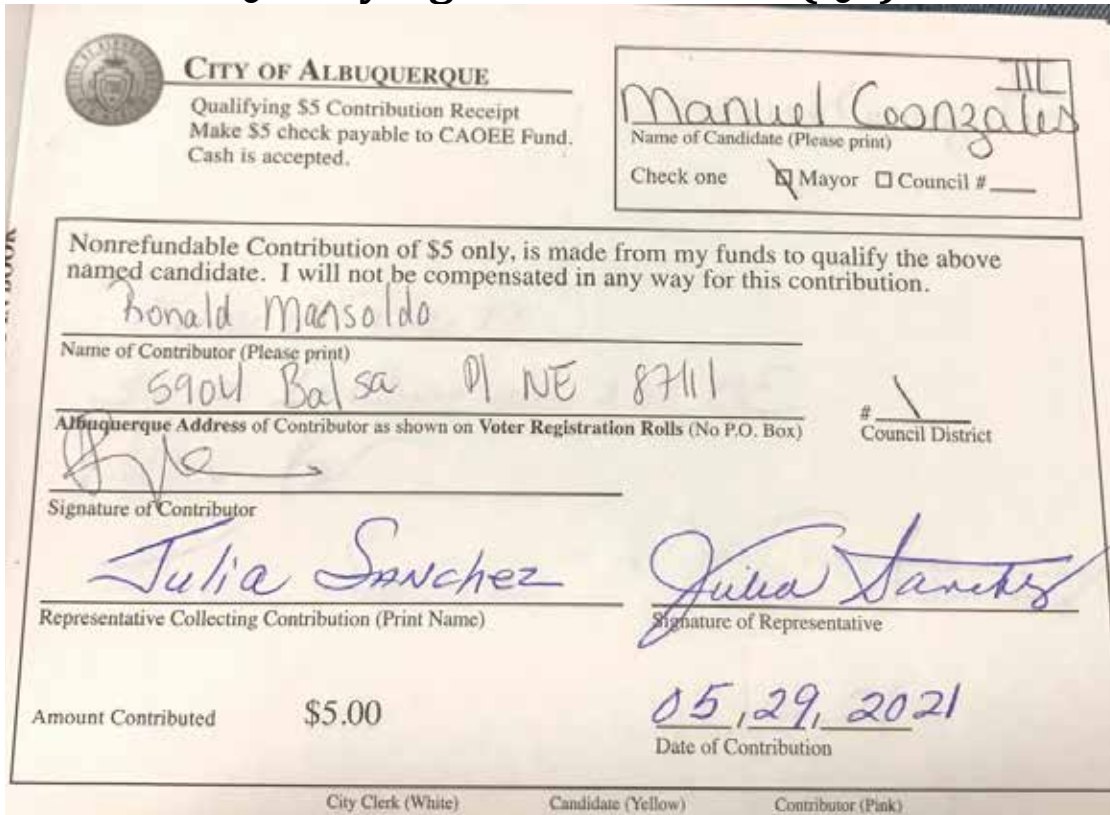 CITY OF ALBUQUERQUE
Qualifying $5 Contribution Receipt
Make $5 check payable to CAOEE Fund.
Cash is accepted.
III
Manuel Goonzales
Name of Candidate (Please print)
Check one Mayor Council #
Nonrefundable Contribution of $5 only, is made from my funds to qualify the above
named candidate. I will not be compensated in any way for this contribution.
Ronald Mansoldo
Name of Contributor (Please print)
5904 Balsa Pl NE 87111
Albuquerque Address of Contributor as shown on Voter Registration Rolls (No P.O. Box)
#
Council District
Signature of Contributor
Julia Sanchez
Julia Sanchez
Representative Collecting Contribution (Print Name)
Signature of Representative
Amount Contributed $5.00
05, 29, 2021
Date of Contribution
City Clerk (White) Candidate (Yellow) Contributor (Pink)